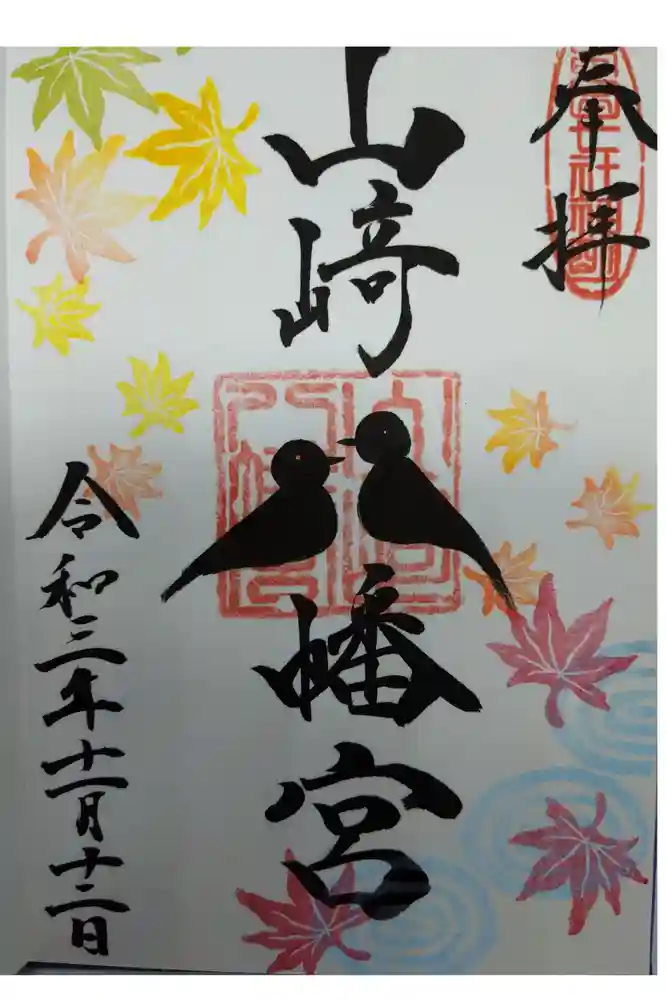 奉拝
山﨑八幡宮
令和三年十一月十二日